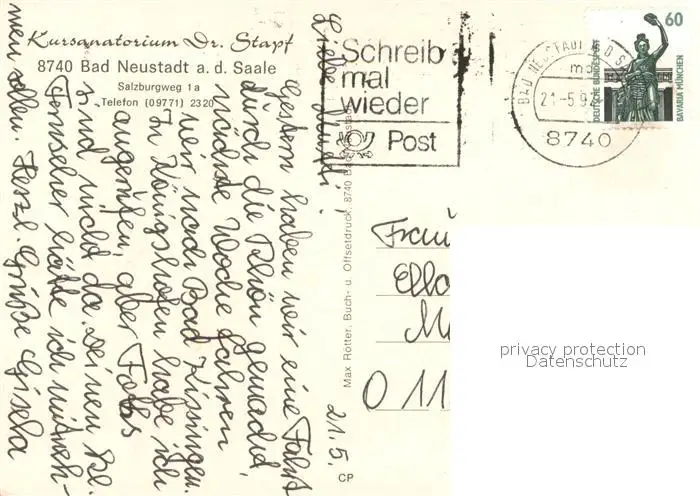 Kursanatorium Dr. Stapf
8740 Bad Neustadt a. d. Saale
Salzburgweg 1a
Telefon (09771) 2320
Liebe
Gestern haben wir eine Fahrt
durch die Rhön gemacht,
nächste Woche fahren
wir nach Bad Kissingen.
In Königshofen habe ich
angerufen, aber
sind nicht da. Deinen
Fernseher hätte ich mitneh-
men sollen. Herzl. Grüße Gisela
21.5.
Max Rötter, Buch- u. Offsetdruck, 8740 Bad Neustadt
CP
Schreib
mal
wieder
Post
BAD NEUSTADT A D S
21-5.9
8740
60
DEUTSCHE BUNDESPOST
BAVARIA MÜNCHEN
Frau
Ella
O 11
privacy protection
Datenschutz